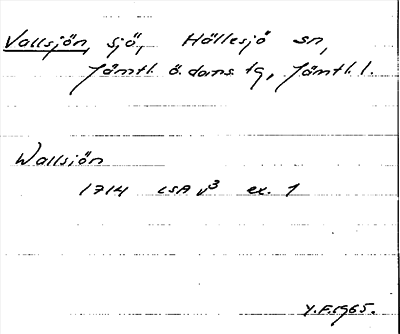 Vallsjön, sjö, Hällesjö sn,
Jämtl. ö. doms. tg, Jämtl. l.
Wallsjön
1714 LSA V3 ex. 1
Y.F. 1965.